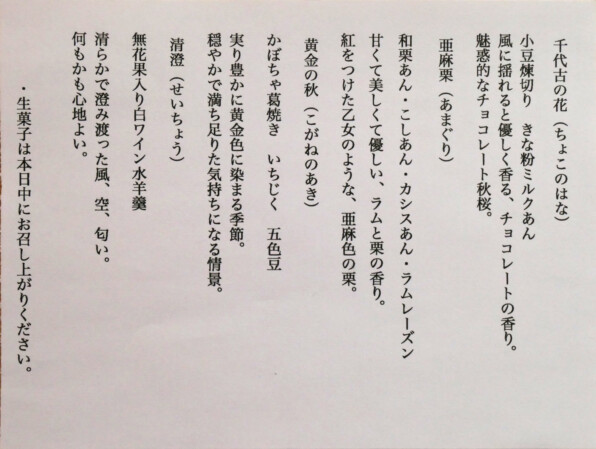 千代古の花（ちょこのはな）
小豆煉切り　きな粉ミルクあん
風に揺れると優しく香る、チョコレートの香り。
魅惑的なチョコレート秋桜。
亜麻栗（あまぐり）
和栗あん・こしあん・カシスあん・ラムレーズン
甘くて美しくて優しい、ラムと栗の香り。
紅をつけた乙女のような、亜麻色の栗。
黄金の秋（こがねのあき）
かぼちゃ葛焼き　いちじく　五色豆
実り豊かに黄金色に染まる季節。
穏やかで満ち足りた気持ちになる情景。
清澄（せいちょう）
無花果入り白ワイン水羊羹
清らかで澄み渡った風、空、匂い。
何もかも心地よい。
・生菓子は本日中にお召し上がりください。